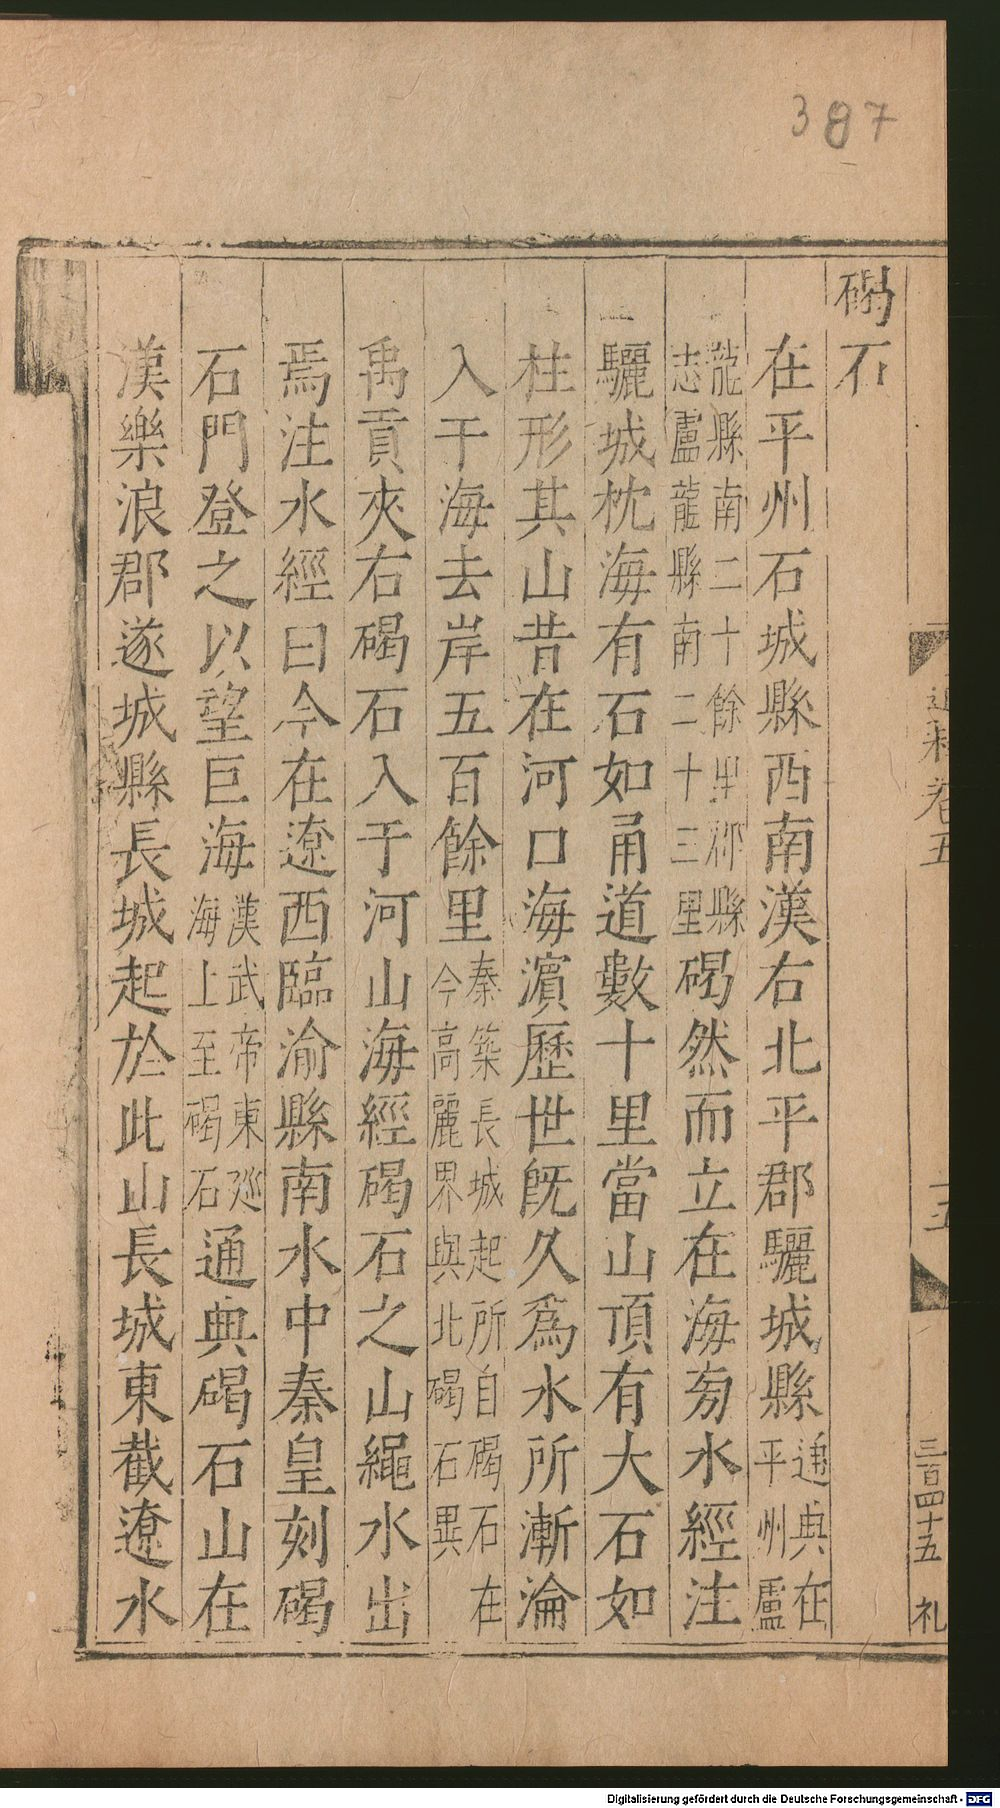 387
碣石
在平州石城縣西南漢右北平郡驪城縣通典在平州盧
龍縣南二十餘里郡縣志盧龍縣南二十三里碣然而立在海旁水經注
驪城枕海有石如甬道數十里當山頂有大石如
柱形其山昔在河口海濵歷世旣久爲水所漸淪
入于海去岸五百餘里秦築長城起所自碣石在今高麗界與北碣石異
禹貢夾右碣石入于河山海經碣石之山繩水出
焉注水經曰今在遼西臨渝縣南水中秦皇刻碣
石門登之以望巨海漢武帝東廵海上至碣石通典碣石山在
漢樂浪郡遂城縣長城起於此山長城東截遼水
卷五
十五
三百四十五 礼
Digitalisierung gefördert durch die Deutsche Forschungsgemeinschaft - DFG